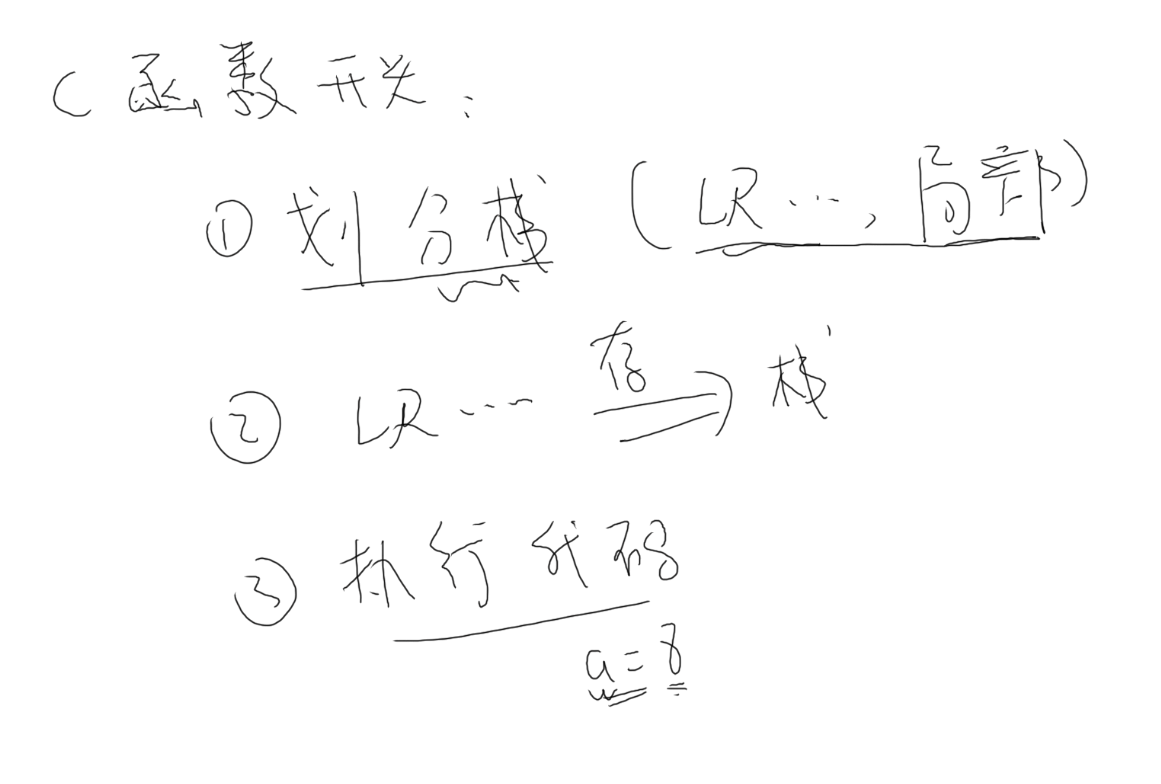 C函数开头:
① 划分栈 (LR ..., 局部)
② LR ... 存 栈
③ 执行代码
a=8